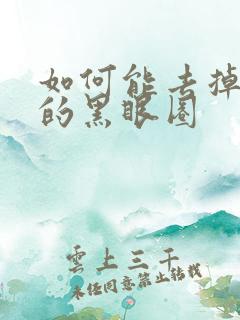 如何能去掉
的黑眼圈
雲上三千
未经同意禁止转载